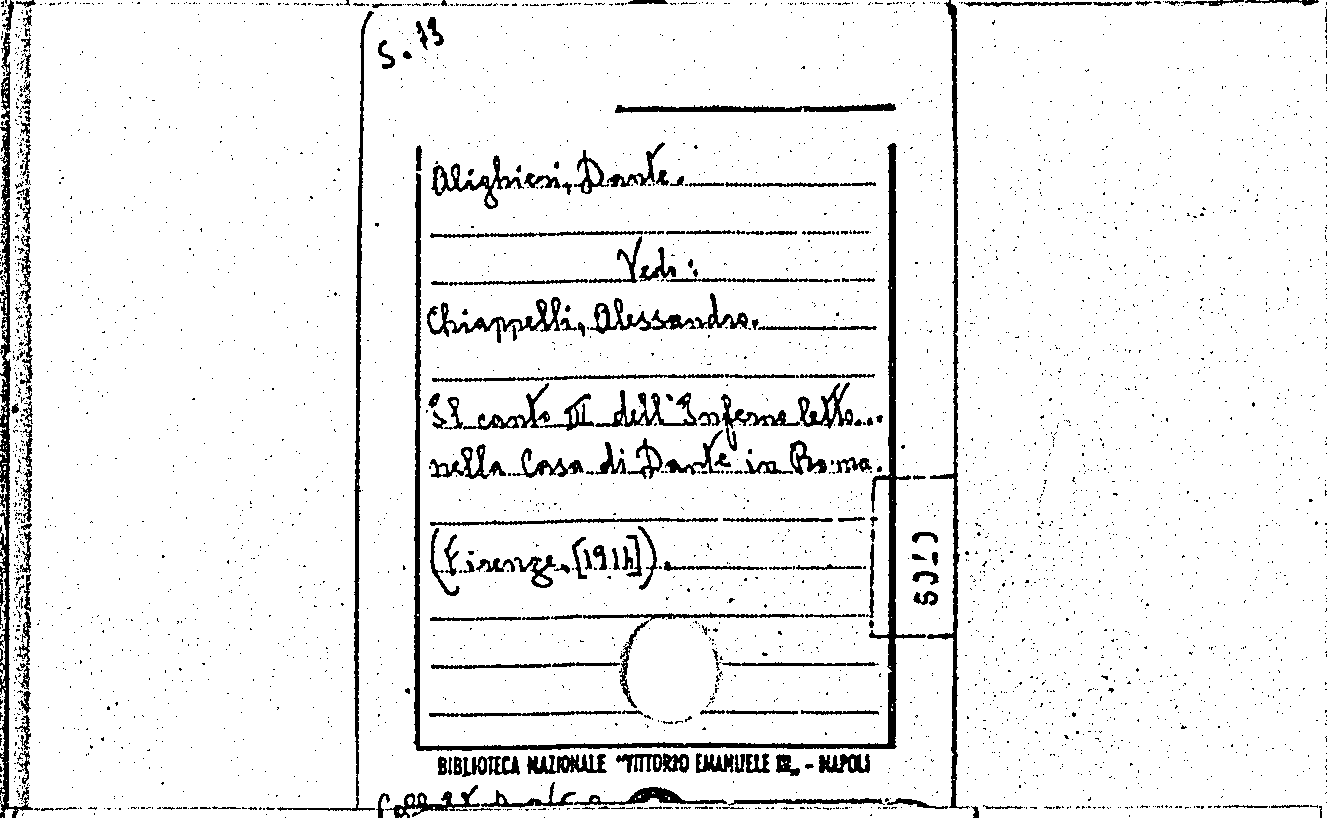 S. 73
Alighieri, Dante.
Vedi:
Chiappelli, Alessandro.
Il canto III dell'Inferno letto...
nella Casa di Dante in Roma.
(Firenze, [1914]).
BIBLIOTECA NAZIONALE "VITTORIO EMANUELE III„ - NAPOLI